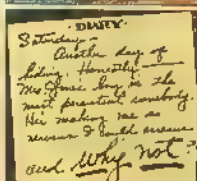 · DIARY ·
Saturday –
Another day of
hiding. Honestly –
Mrs. Jones' boy is the
most persistent somebody.
He's making me so
nervous I could scream
and Why not?